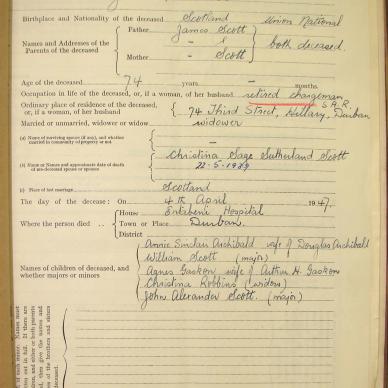 Birthplace and Nationality of the deceased Scotland Union National
Names and Addresses of the Parents of the deceased
Father James Scott
Mother - Scott
both deceased.
Age of the deceased 74 years - months.
Occupation in life of the deceased, or, if a woman, of her husband retired chargeman S.A.R.
Ordinary place of residence of the deceased, or, if a woman, of her husband 74 Third Street, Hillary, Durban
Married or unmarried, widower or widow widower
(a) Name of surviving spouse (if any), and whether married in community of property or not -
(b) Name or Names and approximate date of death of pre-deceased spouse or spouses Christina Sage Sutherland Scott
22-5-19
(c) Place of last marriage Scotland
The day of the decease: On 4th April 1947.
Where the person died
House Entabeni Hospital
Town or Place Durban.
District
Names of children of deceased, and whether majors or minors
Annie Sinclair Archibald wife of Douglas Archibald
William Scott (major)
Agnes Gaskon wife of Arthur H. Gaskon
Christina Robbins (widow)
John Alexander Scott. (major)
of each minor. Names must
ten out in full. If there are
dren, and either or both parents
then give the names and
of the brothers and sisters
deceased.